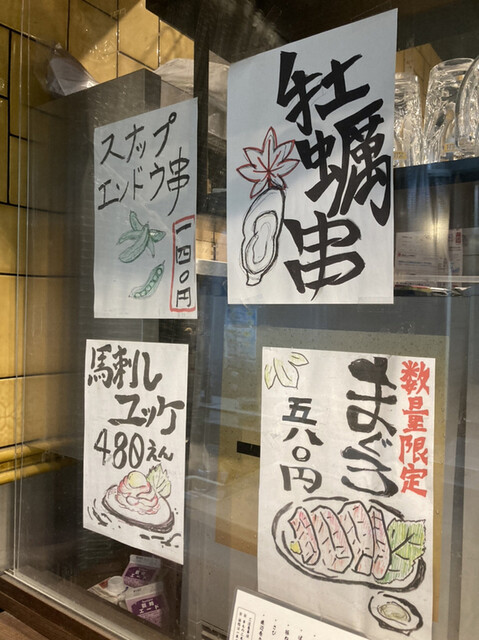 スナップ
エンドウ串
一四〇円
牡蠣串
馬刺し
ユッケ
480えん
数量限定
まぐろ
五八〇円